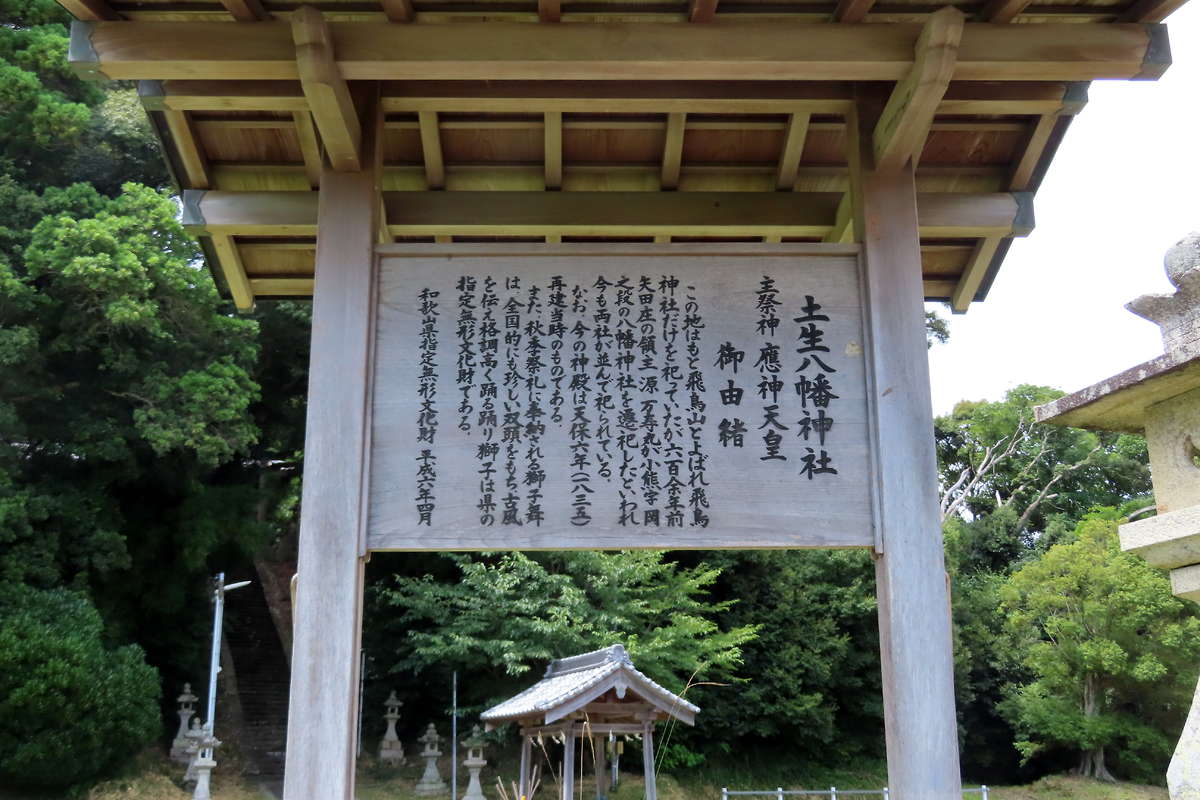 土生八幡神社
主祭神 應神天皇
御由緒
この地はもと飛鳥山とよばれ飛鳥
神社だけを祀っていたが六百余年前
矢田庄の領主 源 万寿丸が小熊字岡
之段の八幡神社を遷祀したといわれ
今も両社が並んで祀られている。
なお、今の神殿は天保六年(一八三五)
再建当時のものである。
また、秋季祭礼に奉納される獅子舞
は、全国的にも珍しい双頭をもち古風
を伝え格調高く踊る踊り獅子は県の
指定無形文化財である。
和歌山県指定無形文化財 平成六年四月